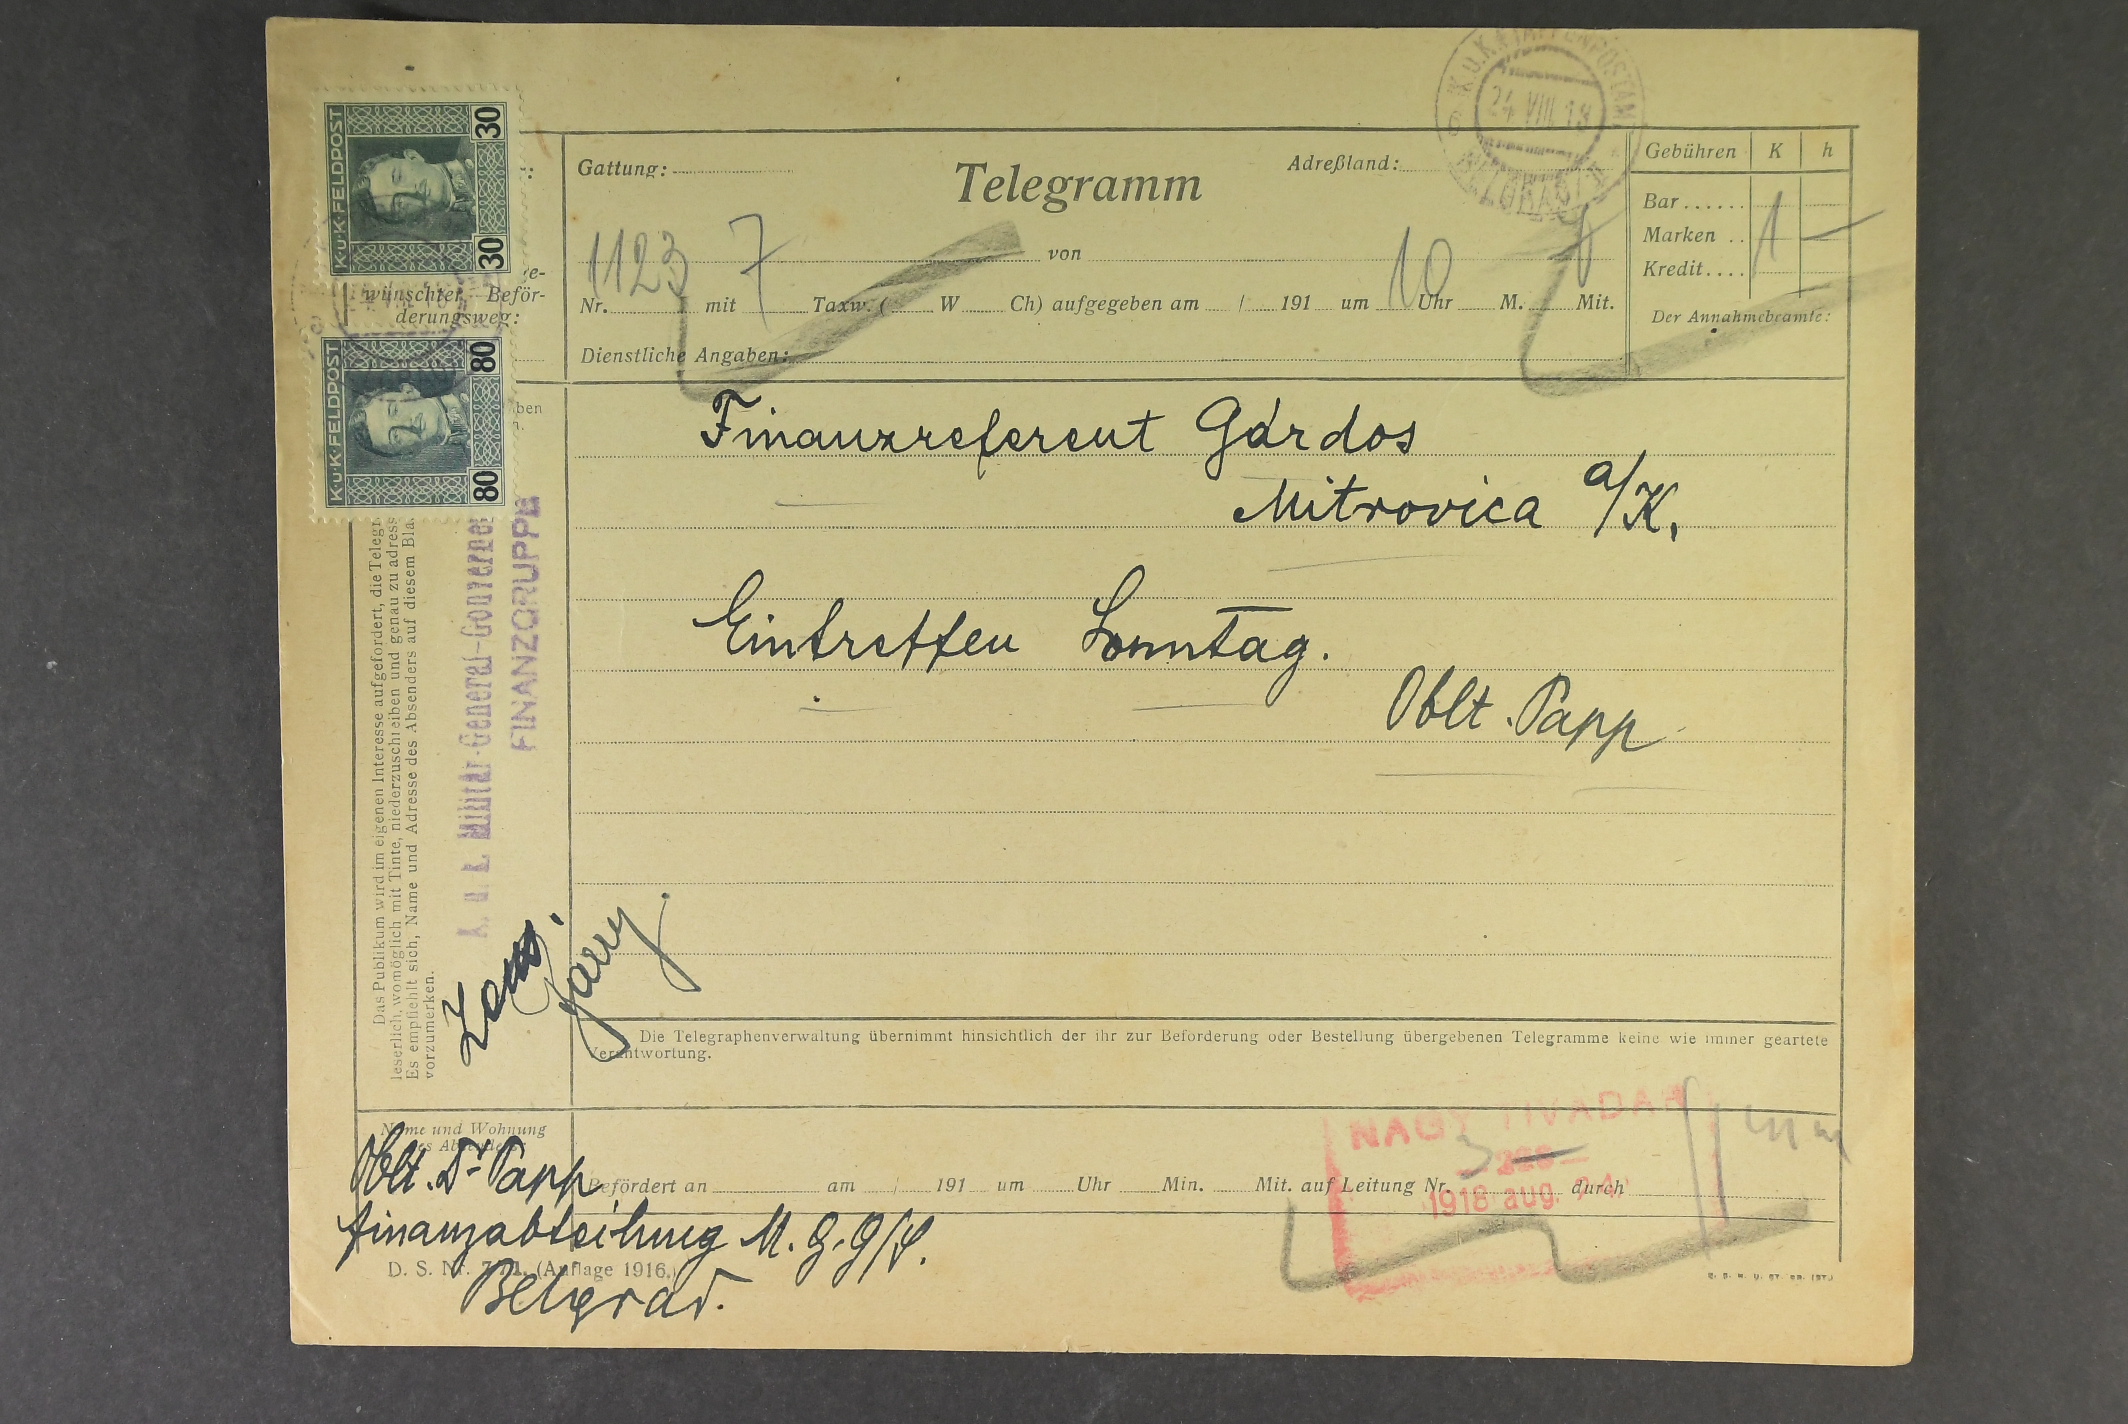 K.U.K. ETAPPENPOSTAMT
24 VIII 18
K.u.K.FELDPOST
30
30
K.u.K.FELDPOST
80
80
wünschter Beför-
derungsweg:
Gattung:
Telegramm
Adreßland:
Gebühren K h
Bar......
Marken .. 1 —
Kredit....
Der Annahmebeamte:
1123 7 von 10
Nr. mit Taxw. ( W Ch) aufgegeben am / 191 um Uhr M. Mit.
Dienstliche Angaben:
Finanzreferent Gárdos
Mitrovica a/K.
Eintreffen Sonntag.
Oblt. Papp
Das Publikum wird im eigenen Interesse aufgefordert, die Telegr
leserlich, womöglich mit Tinte, niederzuschreiben und genau zu adress
Es empfiehlt sich, Name und Adresse des Absenders auf diesem Bla
vorzumerken.
K. u. k. Militär-General-Gouverne
FINANZGRUPPE
Die Telegraphenverwaltung übernimmt hinsichtlich der ihr zur Beförderung oder Bestellung übergebenen Telegramme keine wie immer geartete
Verantwortung.
Name und Wohnung
des Absenders
Oblt. Dr Papp
Finanzabteilung M.G.G/S.
Belgrad.
Befördert an am / 191 um Uhr Min. Mit. auf Leitung Nr. durch
NAGY TIVADAR
1918 aug. 24.
D. S. Nr. (Auflage 1916.)